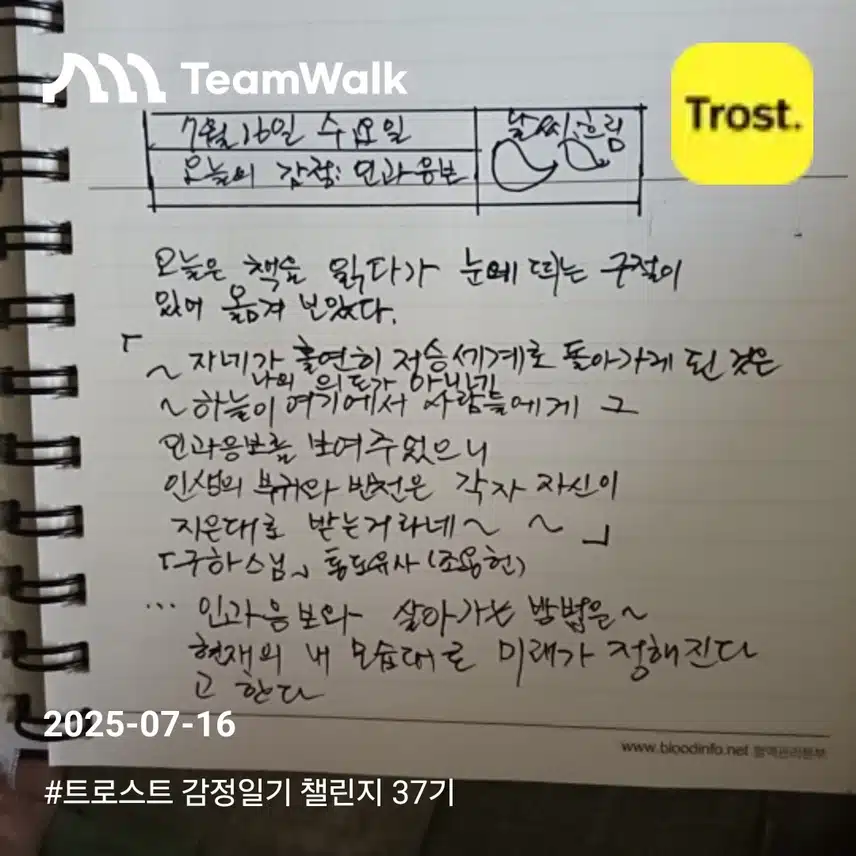 TeamWalk
Trost.
7월 16일 수요일
날씨: 흐림
오늘의 감정: 인과응보
오늘은 책을 읽다가 눈에 띄는 구절이
있어 옮겨 보았다.
「
~ 자네가 홀연히 저승세계로 돌아가게 된 것은
나의 의도가 아니
~ 하늘이 여기에서 사람들에게 그
인과응보를 보여주었으니
인생의 부귀와 빈천은 각자 자신이
지은대로 받는거라네~ ~ 」
「구하스님」 통도유사 (조용헌)
... 인과응보와 살아가는 방법은~
현재의 내 모습대로 미래가 정해진다
고 한다
2025-07-16
www.bloodinfo.net 혈액관리본부
#트로스트 감정일기 챌린지 37기